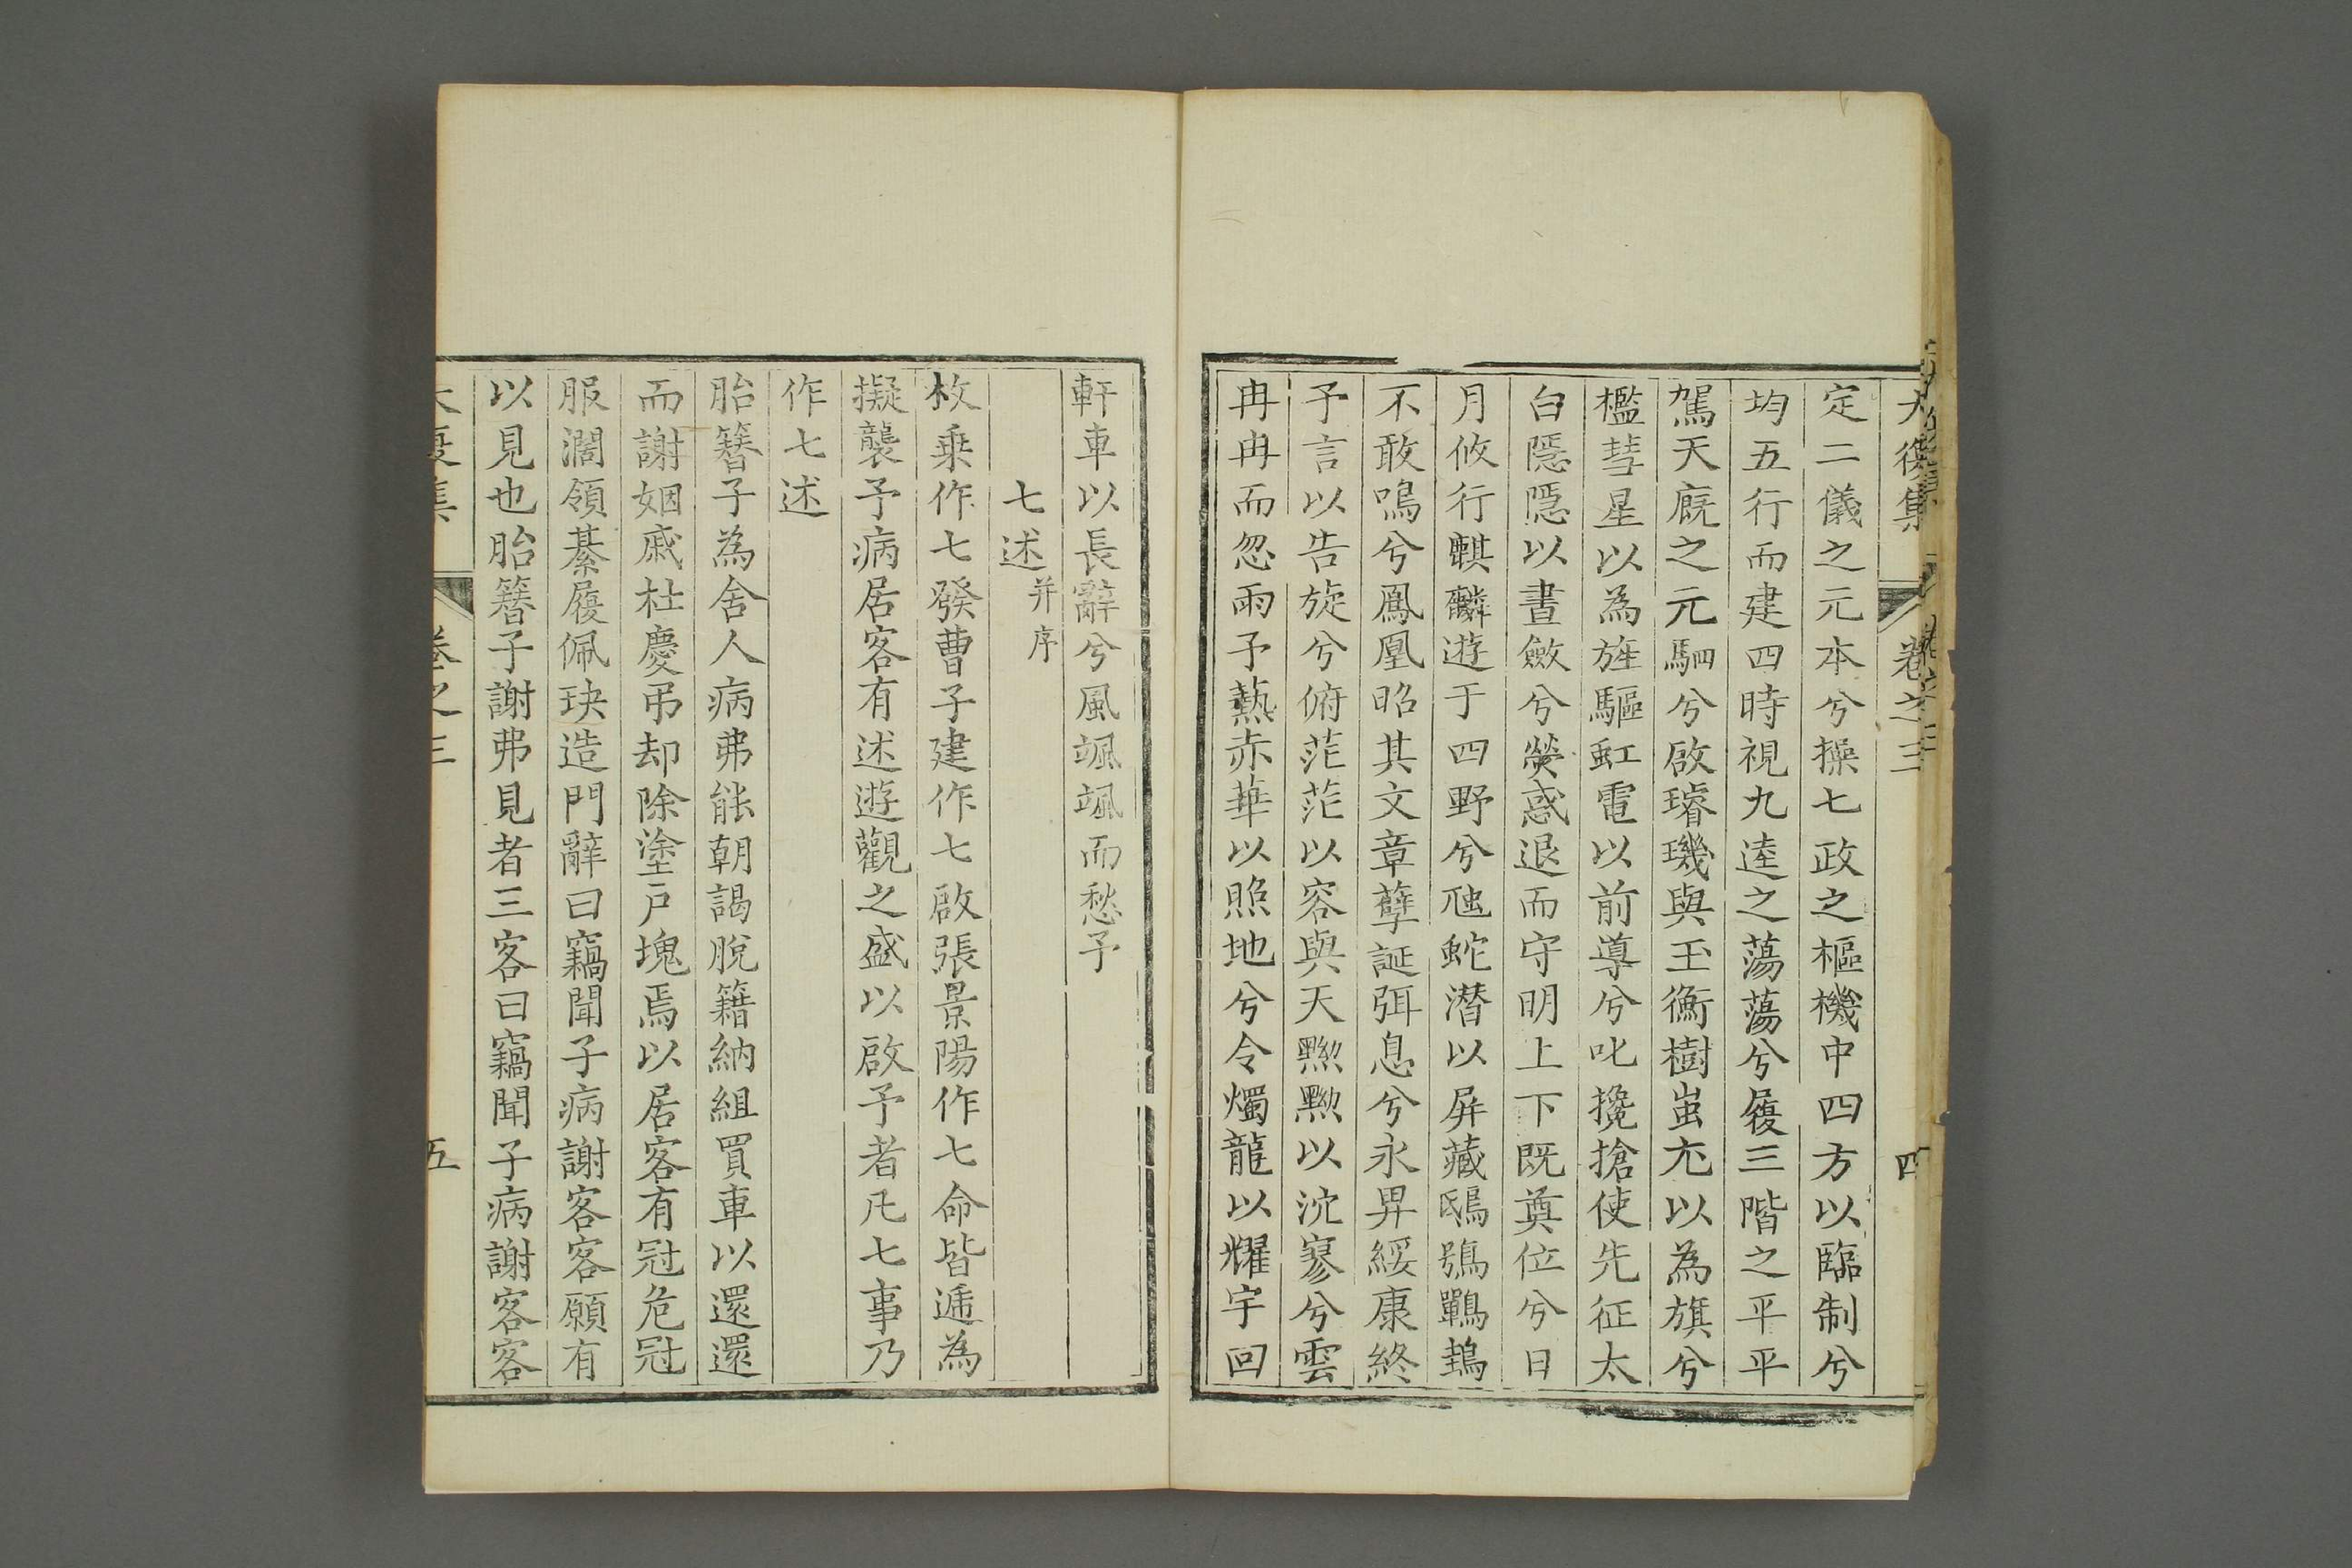 大復集 卷之三 四
定二儀之元本兮操七政之樞機中四方以臨制兮
均五行而建四時視九逵之蕩蕩兮履三階之平平
駕天廐之元駟兮啟璿璣與玉衡樹蚩尤以為旗兮
檻彗星以為旌驅虹電以前導兮叱攙搶使先征太
白隱隱以晝斂兮熒惑退而守明上下既奠位兮日
月攸行麒麟遊于四野兮虺蛇潜以屏藏鴟鴞鸐鵚
不敢鳴兮鳳凰昭其文章孽誕弭息兮永畀綏康終
予言以告旋兮俯茫茫以容與天黝黝以沈寥兮雲
冉冉而忽雨予爇赤華以照地兮令燭龍以耀宇回
軒車以長辭兮風颯颯而愁予
七述并序
枚乗作七發曹子建作七啟張景陽作七命皆遞為
擬襲予病居客有述遊觀之盛以啟予者凡七事乃
作七述
胎簪子為舍人病弗能朝謁脫籍納組買車以還還
而謝姻戚杜慶弔却除塗戶塊焉以居客有冠危冠
服濶領綦履佩玦造門辭曰竊聞子病謝客客願有
以見也胎簪子謝弗見者三客曰竊聞子病謝客客
大復集 卷之三 五